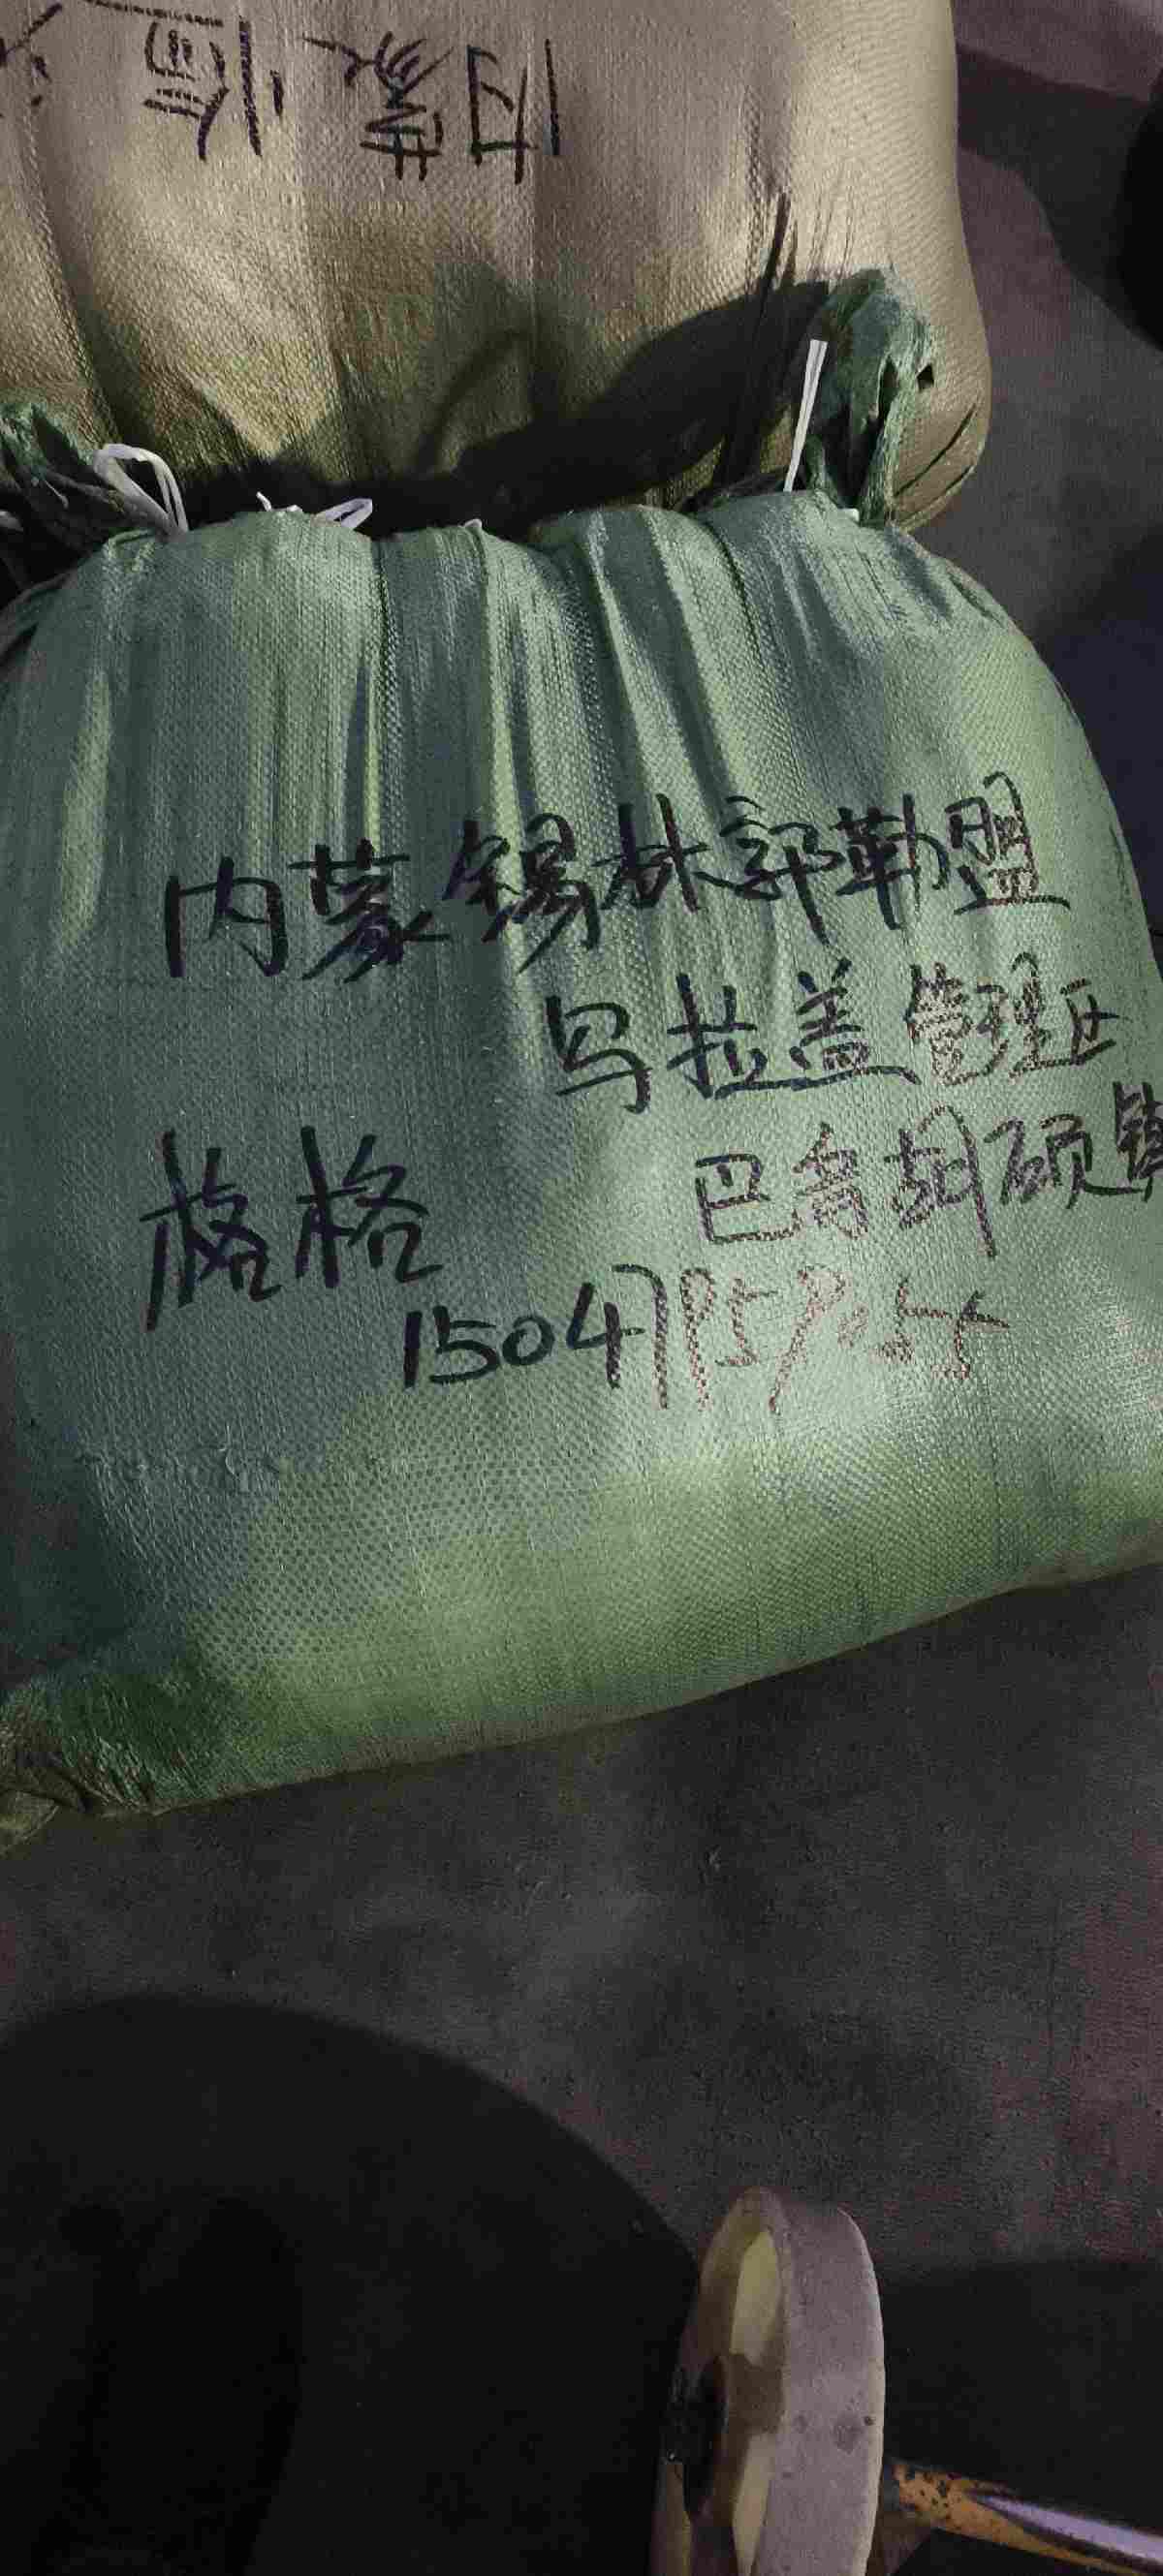 内蒙
内蒙锡林郭勒盟
乌拉盖管理区
巴音胡硕镇
格格
15047